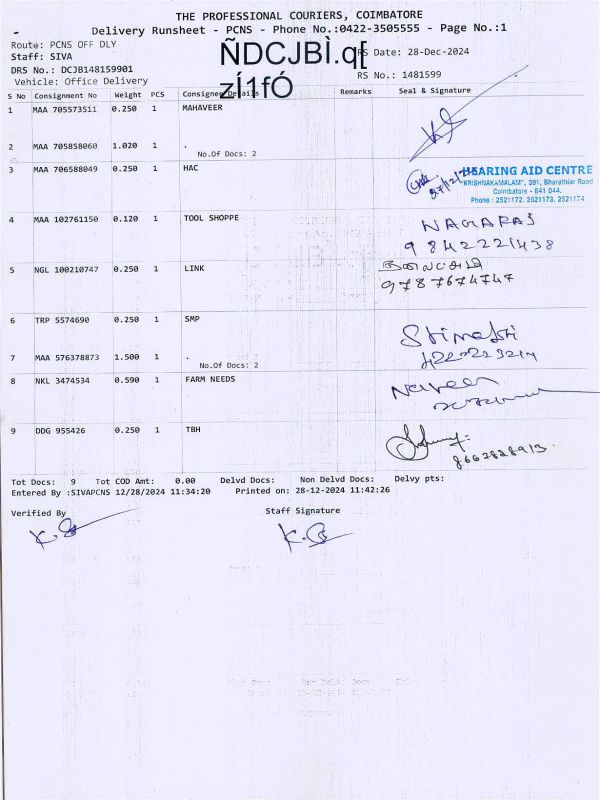 THE PROFESSIONAL COURIERS, COIMBATORE
- Delivery Runsheet - PCNS - Phone No.:0422-3505555 - Page No.:1
Route: PCNS OFF DLY
ÑDCJBÌ.q[
RS Date: 28-Dec-2024
Staff: SIVA
DRS No.: DCJB148159901
zÍ1fÓ
RS No.: 1481599
Vehicle: Office Delivery
S No Consignment No Weight PCS Consignee Details Remarks Seal & Signature
1 MAA 705573511 0.250 1 MAHAVEER
2 MAA 705858060 1.020 1 .
No.Of Docs: 2
3 MAA 706588049 0.250 1 HAC
HEARING AID CENTRE
"KRISHNAKAMALAM", 391, Bharathiar Road
Coimbatore - 641 044.
Phone : 2521172, 2521173, 2521174
4 MAA 102761150 0.120 1 TOOL SHOPPE
NAGARAJ
9842221438
5 NGL 100210747 0.250 1 LINK
9787674747
6 TRP 5574690 0.250 1 SMP
7 MAA 576378873 1.500 1 .
No.Of Docs: 2
8 NKL 3474534 0.590 1 FARM NEEDS
Naveen
9 DDG 955426 0.250 1 TBH
Tot Docs: 9 Tot COD Amt: 0.00 Delvd Docs: Non Delvd Docs: Delvy pts:
Entered By :SIVAPCNS 12/28/2024 11:34:20 Printed on: 28-12-2024 11:42:26
Verified By Staff Signature